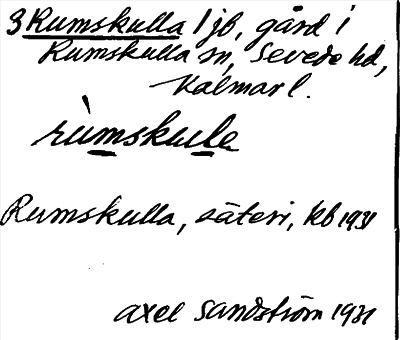 3 Rumskulla 1 jb, gård i
Rumskulla sn, Sevede hd,
Kalmar l.
rùmskule
Rumskulla, säteri, kb 1931
Axel Sandström 1931